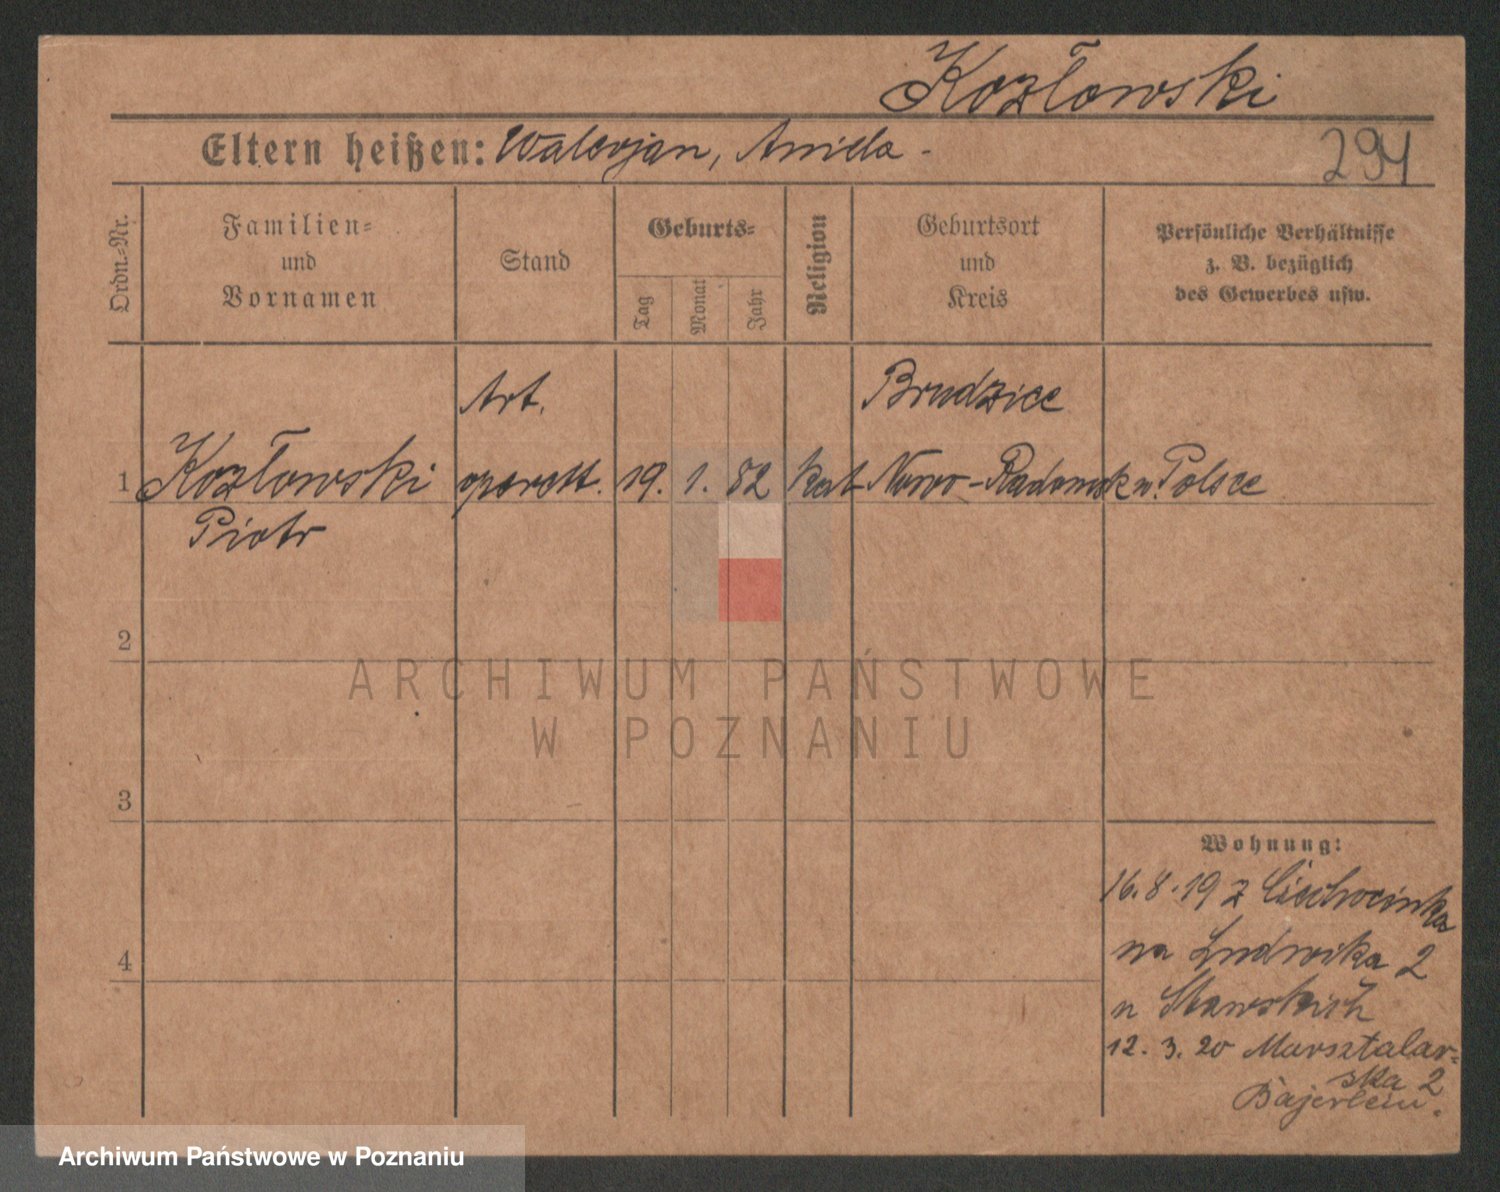 Kozłowski
Eltern heißen: Waleryan, Aniela -
294
Ordn.-Nr.
Familien-
und
Vornamen
Stand
Geburts-
Tag
Monat
Jahr
Religion
Geburtsort
und
Kreis
Persönliche Verhältnisse
z. B. bezüglich
des Gewerbes usw.
Art. Brudzice
1 Kozłowski operett. 19. 1. 82 kat Nowo-Radomsk w. Polsce
Piotr
2
ARCHIWUM PAŃSTWOWE
W POZNANIU
3
Wohnung:
16.8.19 z Ciechocinka
na Ludwika 2
4
u Stawskich
12. 3. 20 Marsztalar-
ska 2
Bajerlein.
Archiwum Państwowe w Poznaniu